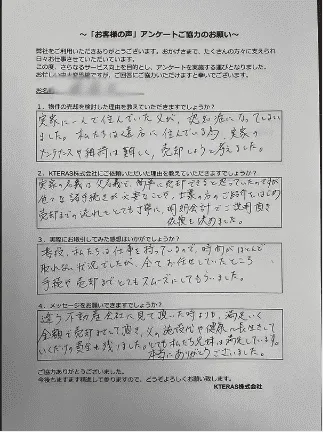 ～「お客様の声」アンケートご協力のお願い～
弊社をご利用いただきありがとうございます。おかげさまで、たくさんの方々に支えられ
日々お仕事させていただいています。
この度、さらなるサービス向上を目的とし、アンケートを実施する運びとなりました。
お忙しい中大変恐縮ですが、ご回答にご協力いただけますと幸いでございます。
お名前
1．物件の売却を検討した理由を教えていただきますでしょうか？
実家に一人で住んでいた父が、認知症になってしまい
ました。私たちは遠方に住んでいる為、実家の
メンテナンスや維持は難しく、売却しようと考えました。
2．KTERAS株式会社にご依頼いただいた理由を教えていただきますでしょうか？
実家の名義は父名義で、簡単に売却できると思っていたのですが
色々な諸手続きが必要なことや、士業の方のご紹介もしてもらい
売却までの流れもとても丁寧に、明朗会計でご説明頂き
依頼を決めました。
3．実際にお取引してみた感想はいかがでしょうか？
普段、私たちは仕事を持っているので、時間がほとんど
取れない状況でしたが、全てお任せしていたところ
手続や売却までとてもスムーズにしてもらいました。
4．メッセージをお願いできますでしょうか？
違う不動産会社に見て頂いた時よりも、満足いく
金額で売却させて頂き、父の施設代や健康に長生きして
いくだけの資金も残りました。とても私たち兄妹は満足しています。
本当にありがとうございました。
ご協力ありがとうございました。
今後もますます精進して参りますので、どうぞよろしくお願い致します。
KTERAS株式会社